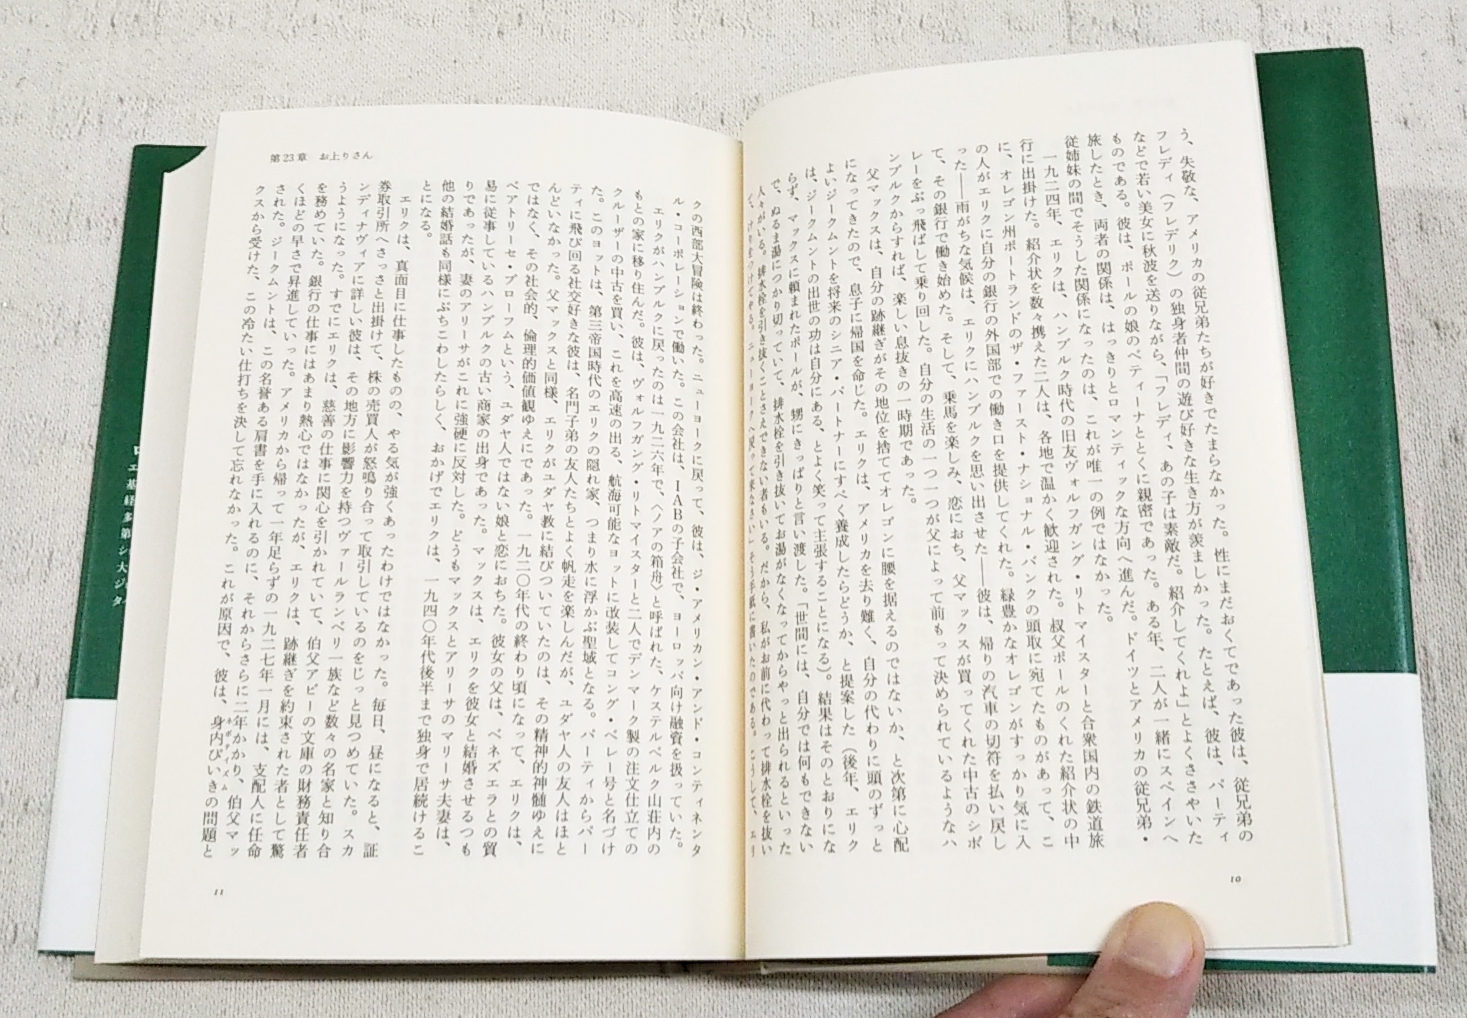 う、失敬な、アメリカの従兄弟たちが好きでたまらなかった。性にまだおくてであった彼は、従兄弟の
フレディ（フレデリク）の独身者仲間の遊び好きな生き方が羨ましかった。たとえば、彼は、パーティ
などで若い美女に秋波を送りながら、「フレディ、あの子は素敵だ。紹介してくれよ」とよくささやいた
ものである。彼は、ポールの娘のベティーナととくに親密であった。ある年、二人が一緒にスペインへ
旅したとき、両者の関係は、はっきりとロマンティックな方向へ進んだ。ドイツとアメリカの従兄弟・
従姉妹の間でそうした関係になったのは、これが唯一の例ではなかった。
一九二四年、エリクは、ハンブルク時代の旧友ヴォルフガング・リトマイスターと合衆国内の鉄道旅
行に出掛けた。紹介状を数々携えた二人は、各地で温かく歓迎された。叔父ポールのくれた紹介状の中
に、オレゴン州ポートランドのザ・ファースト・ナショナル・バンクの頭取に宛てたものがあって、こ
の人がエリクに自分の銀行の外国部での働き口を提供してくれた。緑豊かなオレゴンがすっかり気に入
った——雨がちな気候は、エリクにハンブルクを思い出させた——彼は、帰りの汽車の切符を払い戻し
て、その銀行で働き始めた。そして、乗馬を楽しみ、恋におち、父マックスが買ってくれた中古のシボ
レーをぶっ飛ばして乗り回した。自分の生活の一つ一つが父によって前もって決められているようなハ
ンブルクからすれば、楽しい息抜きの一時期であった。
父マックスは、自分の跡継ぎがその地位を捨ててオレゴンに腰を据えるのではないか、と次第に心配
になってきたので、息子に帰国を命じた。エリクは、アメリカを去り難く、自分の代わりに頭のずっと
よいジークムントを将来のシニア・パートナーにすべく養成したらどうか、と提案した（後年、エリク
は、ジークムントの出世の功は自分にある、とよく笑って主張することになる）。結果はそのとおりにな
らず、マックスに頼まれたポールが、甥にきっぱりと言い渡した。「世間には、自分では何もできない
で、ぬるま湯につかり切っていて、排水栓を引き抜いてお湯がなくなってからやっと出られるといった
人々がいる。排水栓を引き抜くことさえできない者もいる。だから、私がお前に代わって排水栓を抜い
第23章　お上りさん
クの西部大冒険は終わった。ニューヨークに戻って、彼は、ジ・アメリカン・アンド・コンティネンタ
ル・コーポレーションで働いた。この会社は、IABの子会社で、ヨーロッパ向け融資を扱っていた。
エリクがハンブルクに戻ったのは一九二六年で、〈ノアの箱舟〉と呼ばれた、ケステルベルク山荘内の
もとの家に移り住んだ。彼は、ヴォルフガング・リトマイスターと二人でデンマーク製の注文仕立ての
クルーザーの中古を買い、これを高速の出る、航海可能なヨットに改装してコング・ペレー号と名づけ
た。このヨットは、第三帝国時代のエリクの隠れ家、つまり水に浮かぶ聖域となる。パーティからパー
ティに飛び回る社交好きな彼は、名門子弟の友人たちとよく帆走を楽しんだが、ユダヤ人の友人はほと
んどいなかった。父マックスと同様、エリクがユダヤ教に結びついていたのは、その精神的神髄ゆえに
ではなく、その社会的、倫理的価値観ゆえにであった。一九二〇年代の終わり頃になって、エリクは、
ベアトリーセ・ブローフムという、ユダヤ人ではない娘と恋におちた。彼女の父は、ベネズエラとの貿
易に従事しているハンブルクの古い商家の出身であった。マックスは、エリクを彼女と結婚させるつも
りであったが、妻のアリーサがこれに強硬に反対した。どうもマックスとアリーサのマリーサ夫妻は、
他の結婚話も同様にぶちこわしたらしく、おかげでエリクは、一九四〇年代後半まで独身で居続けるこ
とになる。
エリクは、真面目に仕事したものの、やる気が強くあったわけではなかった。毎日、昼になると、証
券取引所へさっさと出掛けて、株の売買人が怒鳴り合って取引しているのをじっと見つめていた。スカ
ンディナヴィアに詳しい彼は、その地方に影響力を持つヴァールランベリ一族など数々の名家と知り合
うようになった。すでにエリクは、慈善の仕事に関心を引かれていて、伯父アビーの文庫の財務責任者
を務めていた。銀行の仕事にはあまり熱心ではなかったが、エリクは、跡継ぎを約束された者として驚
くほどの早さで昇進していった。アメリカから帰って一年足らずの一九二七年一月には、支配人に任命
された。ジークムントは、この名誉ある肩書を手に入れるのに、それからさらに二年かかり、伯父マッ
クスから受けた、この冷たい仕打ちを決して忘れなかった。これが原因で、彼は、身内びいきの問題と
ネポティズム
10
11